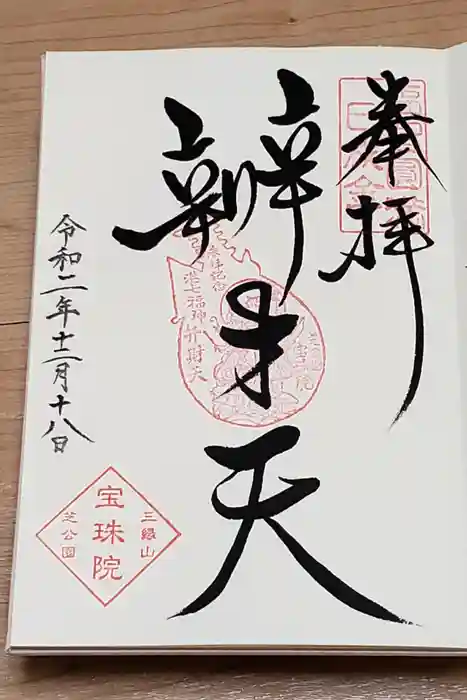 奉拝
辨才天
参拝記念
港七福神
弁財天
令和二年十二月十八日
三縁山
宝珠院
芝公園